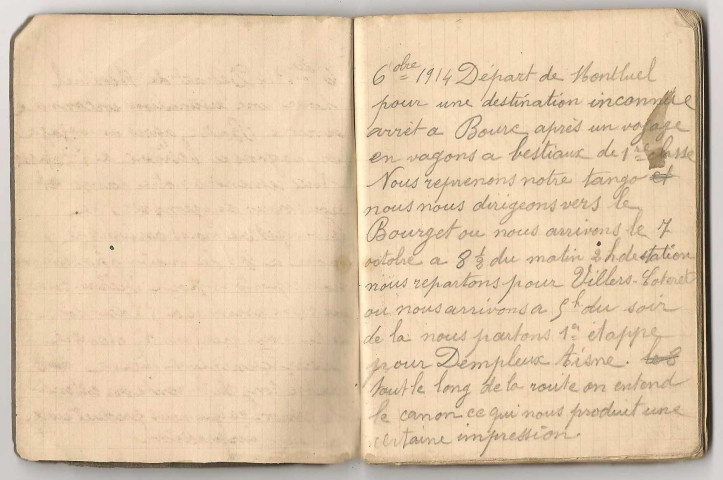 6 obre 1914 Départ de Montluel
pour une destination inconnue
arrêt a Bourc après un voyage
en vagons a bestiaux de 1re classe
Nous reprenons notre tango et
nous nous dirigeons vers le
Bourget ou nous arrivons le 7
octobre a 8 ½ du matin 2 h de station
nous repartons pour Villers-Coteret
ou nous arrivons a 5h du soir
de la nous partons 1re étappe
pour Dempleux Aisne.
tout le long de la route on entend
le canon ce qui nous produit une
certaine impression